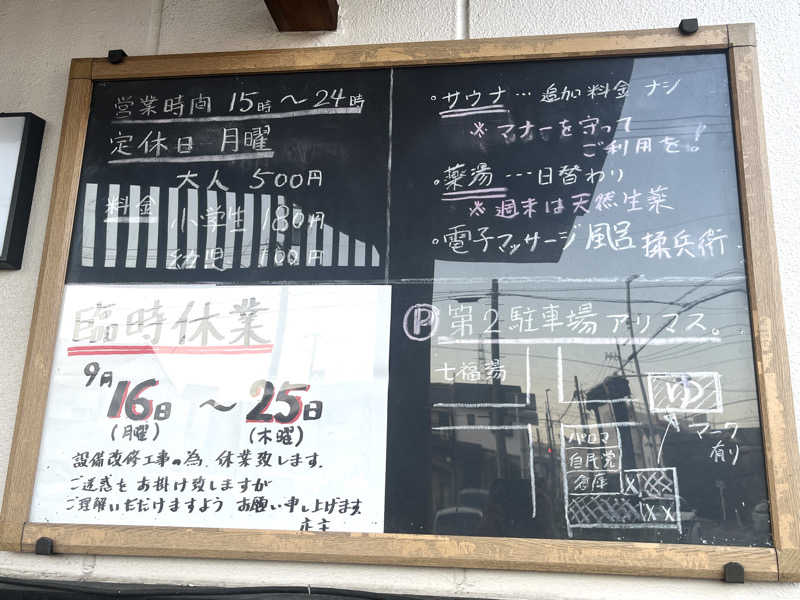 営業時間 15時～24時
定休日 月曜
大人 500円
料金 小学生 180円
幼児 100円
臨時休業
9月16日～25日
(月曜) (木曜)
設備改修工事の為、休業致します。
ご迷惑をお掛け致しますが
ご理解いただけますよう お願い申し上げます。
店主
。サウナ…追加料金ナシ
※マナーを守って
ご利用を!
。薬湯…日替わり
※週末は天然生薬
。電子マッサージ風呂 揉兵衛
Ⓟ第2駐車場アリマス。
七福湯
ゆ
マーク
有り
パロマ
自民党
倉庫 X
X X